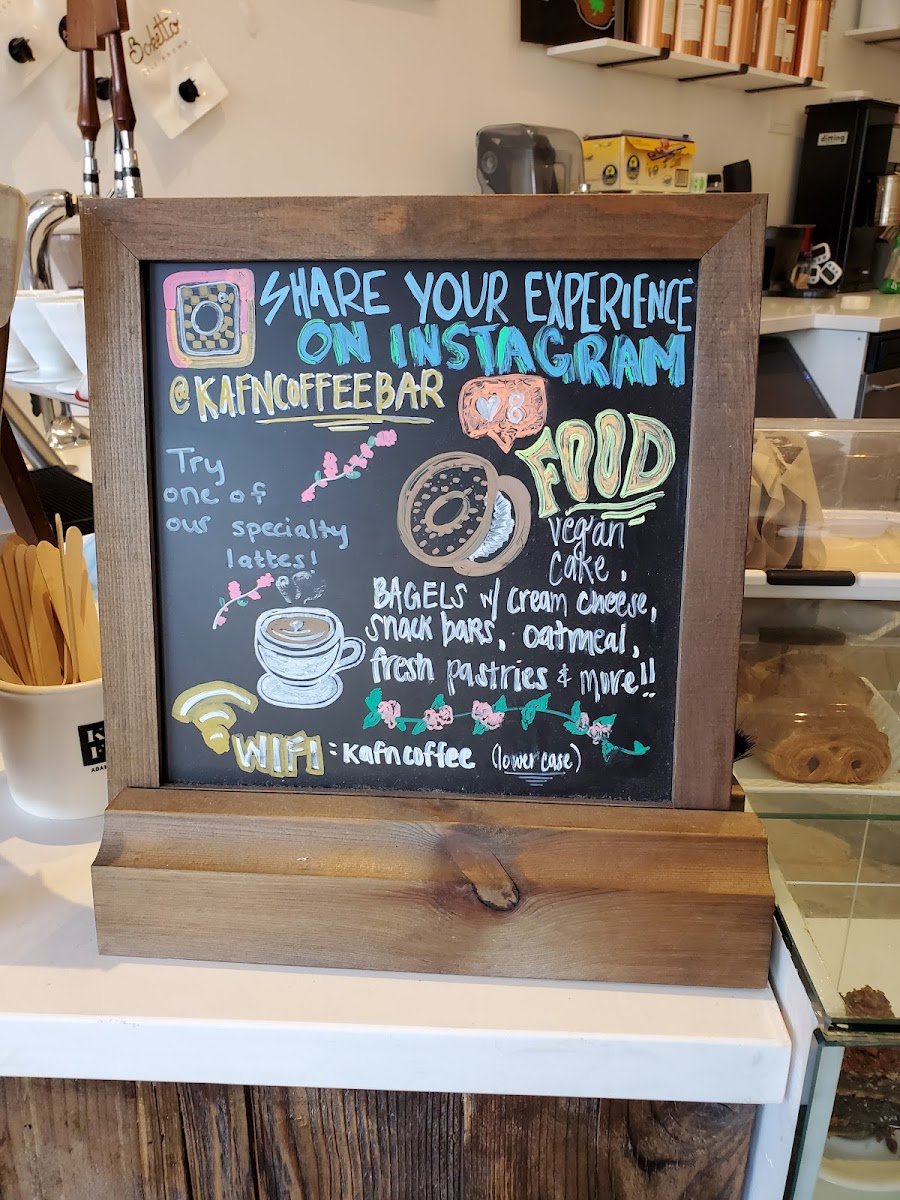 Baketto
ditting
SHARE YOUR EXPERIENCE
ON INSTAGRAM
@KAFNCOFFEEBAR
8
FOOD
Try
one of
our specialty
lattes!
vegan
cake,
BAGELS w/ cream cheese,
snack bars, oatmeal,
fresh pastries & more!!
WIFI: kafncoffee (lowercase)